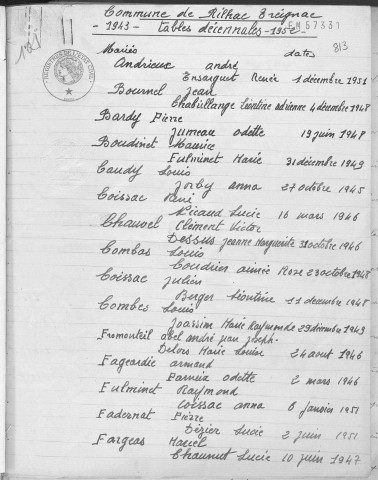 Commune de Rilhac Treignac
- 1943 - Tables décennales - 1952 -
EM57331
813
Mariés dates
Andrieux andré
Ensarguet Renée 1 décembre 1951
Bournel Jean
Chabrillange Léontine adrienne 4 décembre 1948
Bardy Pierre
Jumeau odette 19 juin 1948
Boudinet Maurice
Fulminet Marie 31 décembre 1949
Caudy Louis
Jorby anna 27 octobre 1945
Coissac René
Nicaud Lucie 16 mars 1946
Chauvel Clément Victor
Dessus jeanne marguerite 31 octobre 1946
Combas Louis
Coudrier aimée Rose 23 octobre 1948
Coissac Julien
Berger Léontine 11 decembre 1948
Combes Louis
Joassim Marie Raymonde 29 décembre 1949
Fromonteil abel andré jean joseph.
Delors Marie Louise 24 aout 1946
Fageardie armand
Parneix odette 2 mars 1946
Fulminet Raymond
Coissac anna 6 janvier 1951
Fadernat Pierre
Dézier Lucie 2 juin 1951
Fargeas Marcel
Chaumut Lucie 10 juin 1947